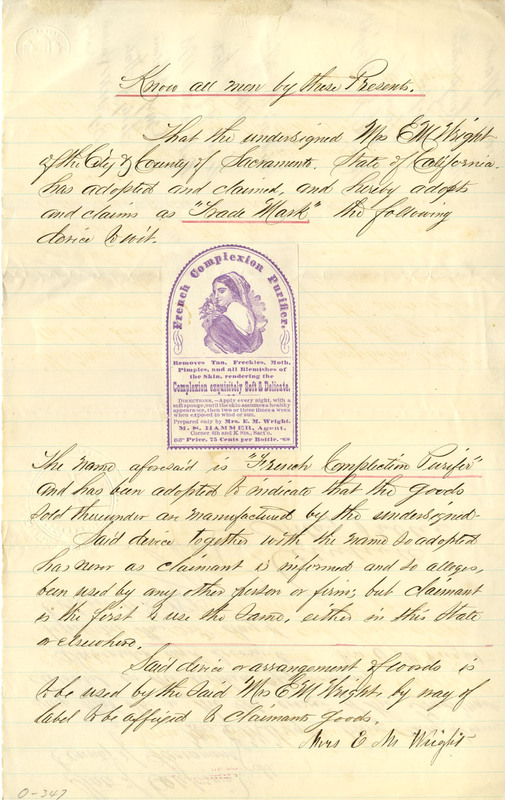 Know all men by these Presents.
That the undersigned Mrs E M Wright
of the City & County of Sacramento. State of California.
has adopted and claimed, and hereby adopts
and claims as "Trade Mark" the following
device to wit.
French Complexion Purifier.
Removes Tan, Freckles, Moth,
Pimples, and all Blemishes of
the Skin, rendering the
Complexion exquisitely Soft & Delicate.
DIRECTIONS.—Apply every night, with a
soft sponge, until the skin assumes a healthy
appearance, then two or three times a week
when exposed to wind or sun.
Prepared only by Mrs. E. M. Wright.
M. S. HAMMER, Agent,
Corner 4th and K Sts., Sact'o.
Price, 75 Cents per Bottle.
The name aforesaid is "French Complection Purifier"
and has been adopted to indicate that the goods
sold thereunder are manufactured by the undersigned.
Said device together with the name so adopted
has never as claimant is informed and so alleges,
been used by any other person or firm; but claimant
is the first to use the same, either in this State
or elsewhere.
Said device or arrangement of words is
to be used by the said Mrs E M Wright, by way of
label to be affixed to claimants goods.
Mrs E M Wright
0-347